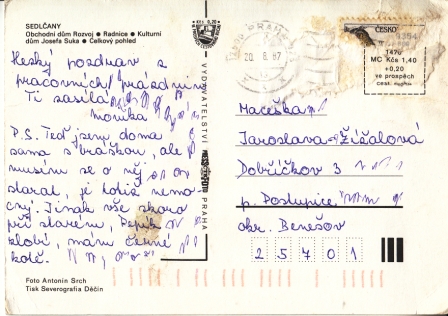 SEDLČANY
Obchodní dům Rozvoj ● Radnice ● Kulturní
dům Josefa Suka ● Celkový pohled
Hezký pozdrav z
pracovních prázdnin
Ti zasílá
Monika
P.S. Teď jsem doma
sama s bráškou, ale
musím se o něj
starat, je totiž nemo-
cný. Jinak vše skoro
při starém, Pepík
zlobí, mám černé
kotě.
Foto Antonín Srch
Tisk Severografia Děčín
VYDAVATELSTVÍ
PRAHA
PRAHA
20. 8. 87
ČESKO
MC Kčs 1,40
+0,20
ve prospěch
Maceška
Jaroslava Žížalová
Dobříčkov 3
p. Postupice
okr. Benešov
25701